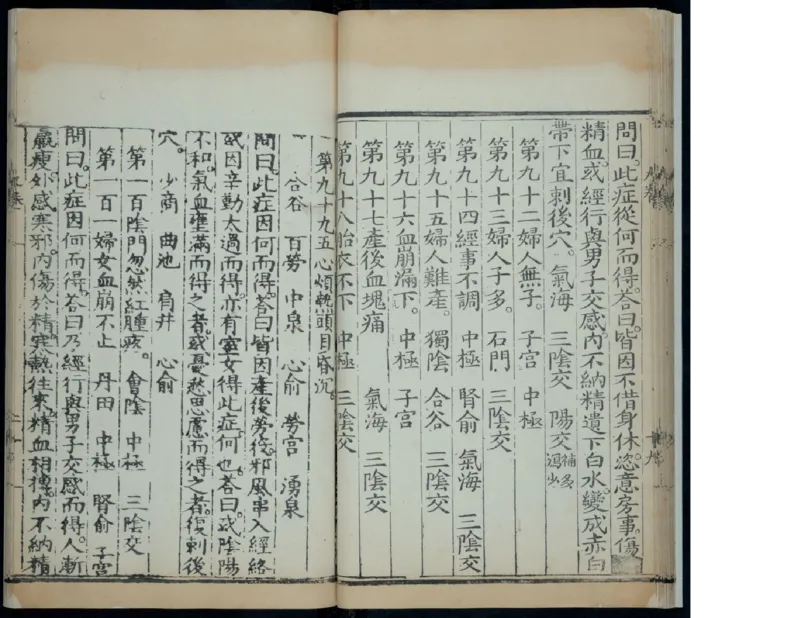 問曰。此症從何而得。荅曰。皆因不惜身体。恣意房事。傷
精血。或經行與男子交感。內不納精。遺下白水。變成赤白
帶下。宜刺後穴。氣海 三陰交 陽交補多瀉少
第九十二婦人無子。 子宮 中極
第九十三婦人子多。 石門 三陰交
第九十四經事不調 中極 腎俞 氣海 三陰交
第九十五婦人難產。 獨陰 合谷 三陰交
第九十六血崩漏下。 中極 子宮
第九十七產後血塊痛 氣海 三陰交
第九十八胎衣不下 中極 三陰交
第九十九五心煩熱頭目昏沉。
合谷 百勞 中泉 心俞 勞宮 湧泉
問曰。此症因何而得。荅曰。皆因產後勞役。邪風串入經絡
或因辛勤太過而得。亦有室女得此症。何也。荅曰。或陰陽
不和。氣血壅滿而得之者。或憂愁思慮而得之者。復刺後
穴。 少商 曲池 肩井 心俞
第一百陰門忽然紅腫疼。 會陰 中極 三陰交
第一百一婦女血崩不止 丹田 中極 腎俞 子宮
問曰。此症因何而得。荅曰。乃經行與男子交感而得。人漸
羸瘦。外感寒邪。內傷於精。寒熱往來。精血相搏。內不納精